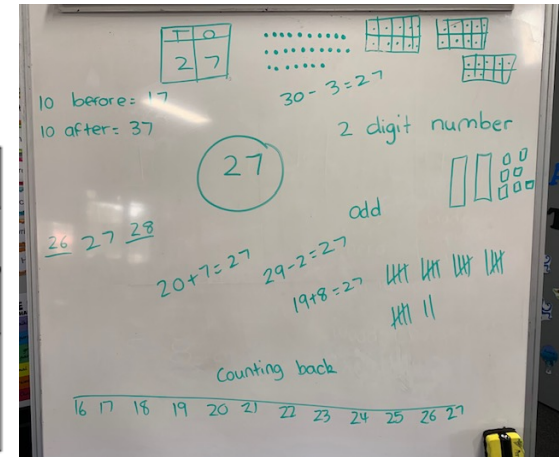 T O
2 7
30 - 3 = 27
10 before = 17
10 after = 37
2 digit number
27
odd
26 27 28
20 + 7 = 27
29 - 2 = 27
19 + 8 = 27
Counting back
16 17 18 19 20 21 22 23 24 25 26 27